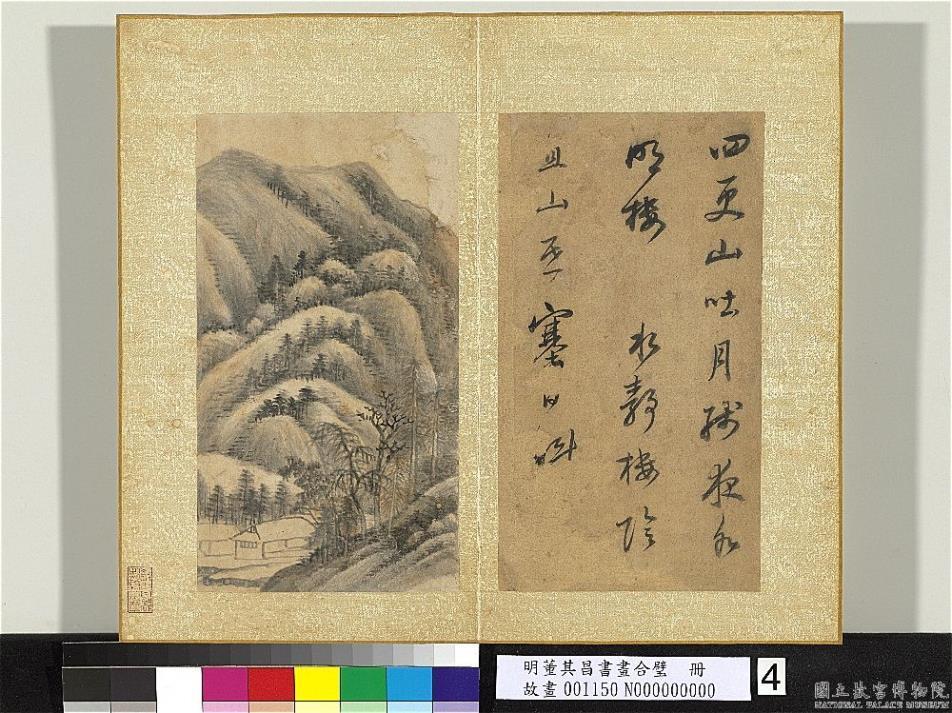 四更山吐月殘夜水
明樓 水靜樓陰
直山昏塞日斜
明董其昌書畫合璧 冊
故畫 001150 N000000000
4
國立故宮博物院
NATIONAL PALACE MUSEUM